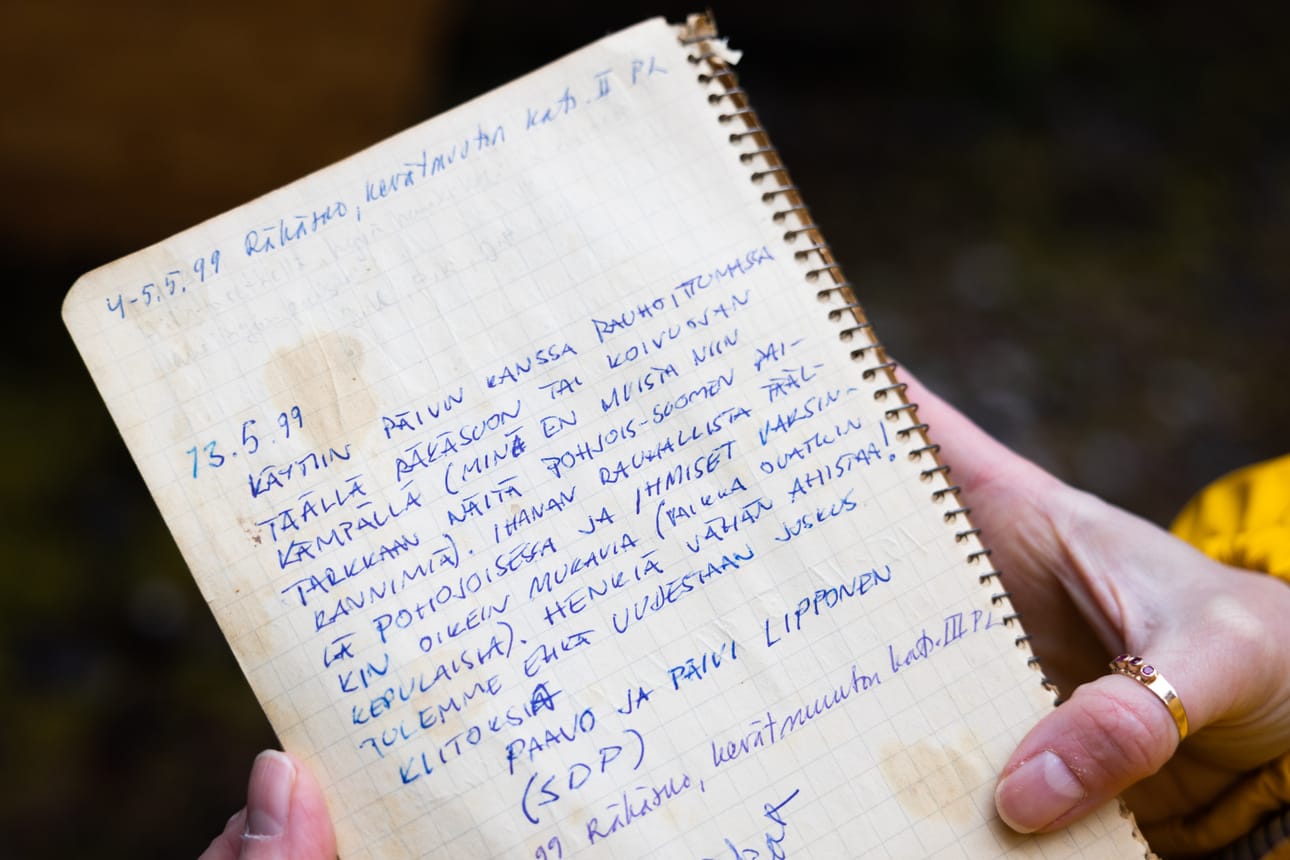 4-5.5.99 Räkäsuo, kevätmuuton kats. II PL
13.5.99
KÄYTIIN PÄIVIN KANSSA RAUHOITTUMASSA
TÄÄLLÄ RÄKÄSUON TAI KOIVUOJAN
KÄMPÄLLÄ (MINÄ EN MUISTA NIIN
TARKKAAN NÄITÄ POHJOIS-SUOMEN PAI-
KANNIMIÄ). IHANAN RAUHALLISTA TÄÄL-
LÄ POHJOISESSA JA IHMISET VARSIN-
KIN OIKEIN MUKAVIA (VAIKKA OVATKIN
KEPULAISIA). HENKIÄ VÄHÄN AHISTAA!
TULEMME EHKÄ UUDESTAAN JOSKUS.
KIITOKSIA
PAAVO JA PÄIVI LIPPONEN
(SDP)
99 Räkäsuo, kevätmuuton kats. III PL